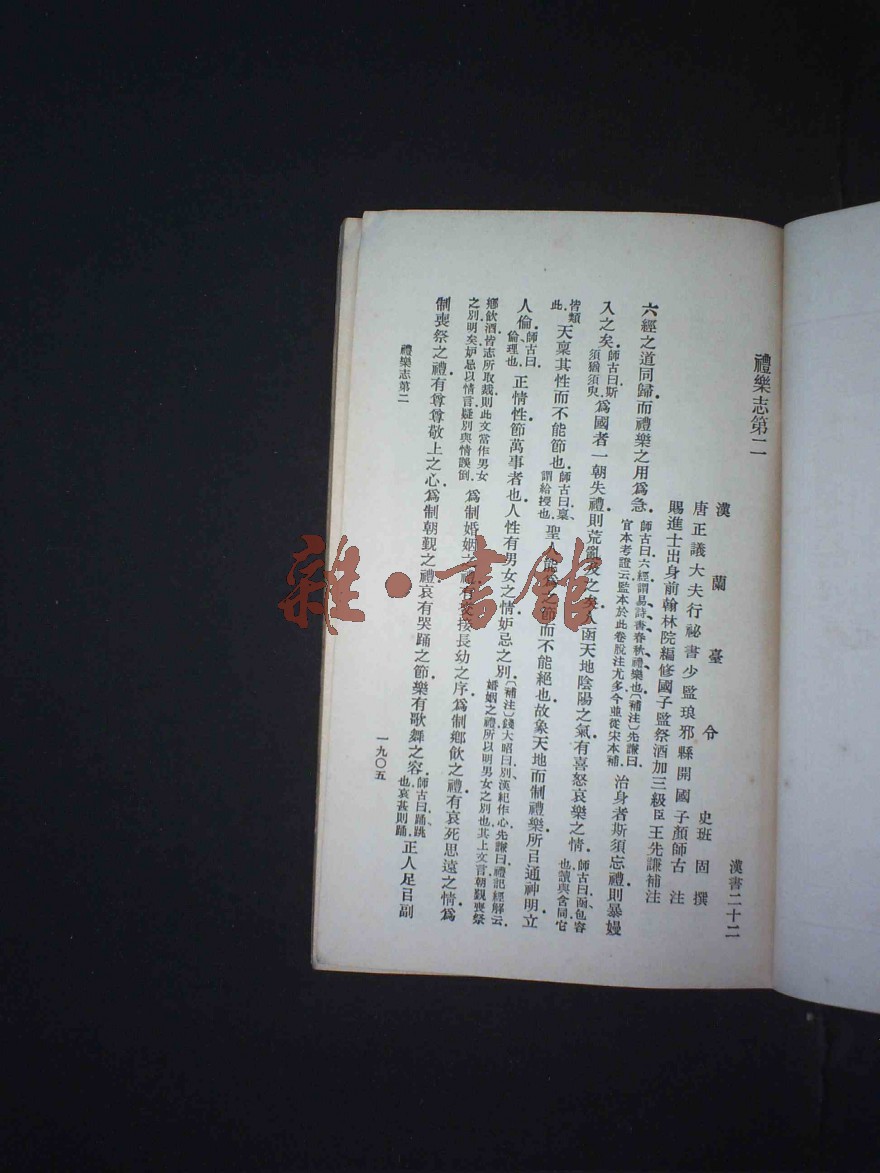 禮樂志第二　漢書二十二
漢蘭臺令史班固撰
唐正議大夫行祕書少監琅邪縣開國子顏師古注
賜進士出身前翰林院編修國子監祭酒加三級臣王先謙補注
六經之道同歸而禮樂之用爲急。師古曰、六經謂易、詩、書、春秋、禮、樂也。〔補注〕先謙曰、官本考證云、監本於此卷脫注尤多、今並從宋本補。治身者斯須忘禮則暴嫚
入之矣。師古曰、斯須猶須臾。爲國者一朝失禮則荒亂及之矣。人函天地陰陽之氣有喜怒哀樂之情。師古曰、函、包容也、讀與含同、它
皆類此。天稟其性而不能節也。師古曰、稟、謂給授也。聖人能爲之節而不能絕也。故象天地而制禮樂所㠯通神明立
人倫。師古曰、倫、理也。正情性節萬事者也。人性有男女之情妒忌之別。〔補注〕錢大昭曰、別、漢紀作心。先謙曰、禮記經解云、婚姻之禮、所以明男女之別也。其上文言朝覲喪祭
鄉飲酒皆志所取裁、則此文當作男女之別明矣、妒忌以情言、疑別與情誤倒。爲制婚姻之禮。有交接長幼之序。爲制鄉飲之禮。有哀死思遠之情。爲
制喪祭之禮。有尊尊敬上之心。爲制朝覲之禮。哀有哭踊之節。樂有歌舞之容。師古曰、踊、跳也、哀甚則踊。正人足㠯副
禮樂志第二　一九〇五
雜·書館